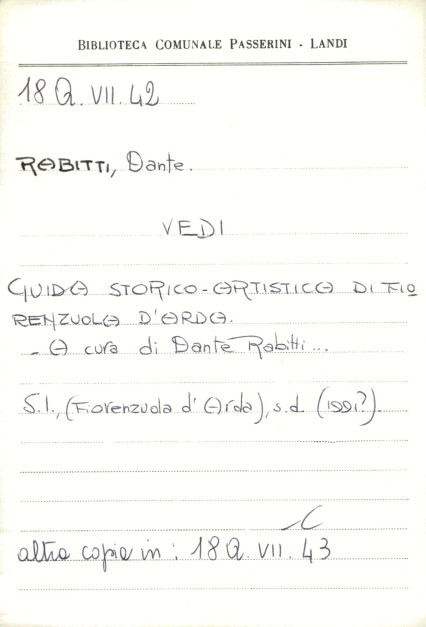 BIBLIOTECA COMUNALE PASSERINI - LANDI
18 Q. VII. 42
RABITTI, Dante.
VEDI
GUIDA STORICO-ARTISTICA DI FIO
RENZUOLA D'ARDA.
- A cura di Dante Rabitti...
S.l., (Fiorenzuola d'Arda), s.d. (1991?).
altra copia in: 18 Q. VII. 43